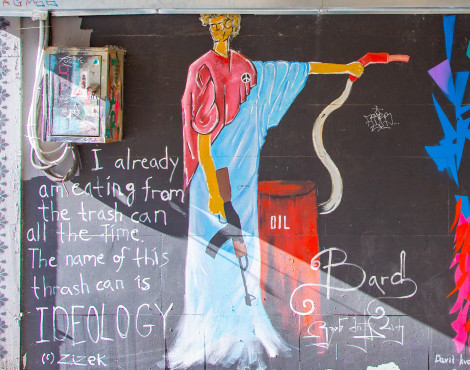 I already
am eating from
the trash can
all the Time.
The name of this
thrash can is
IDEOLOGY
(c) Zizek
OIL
Bard
Davit